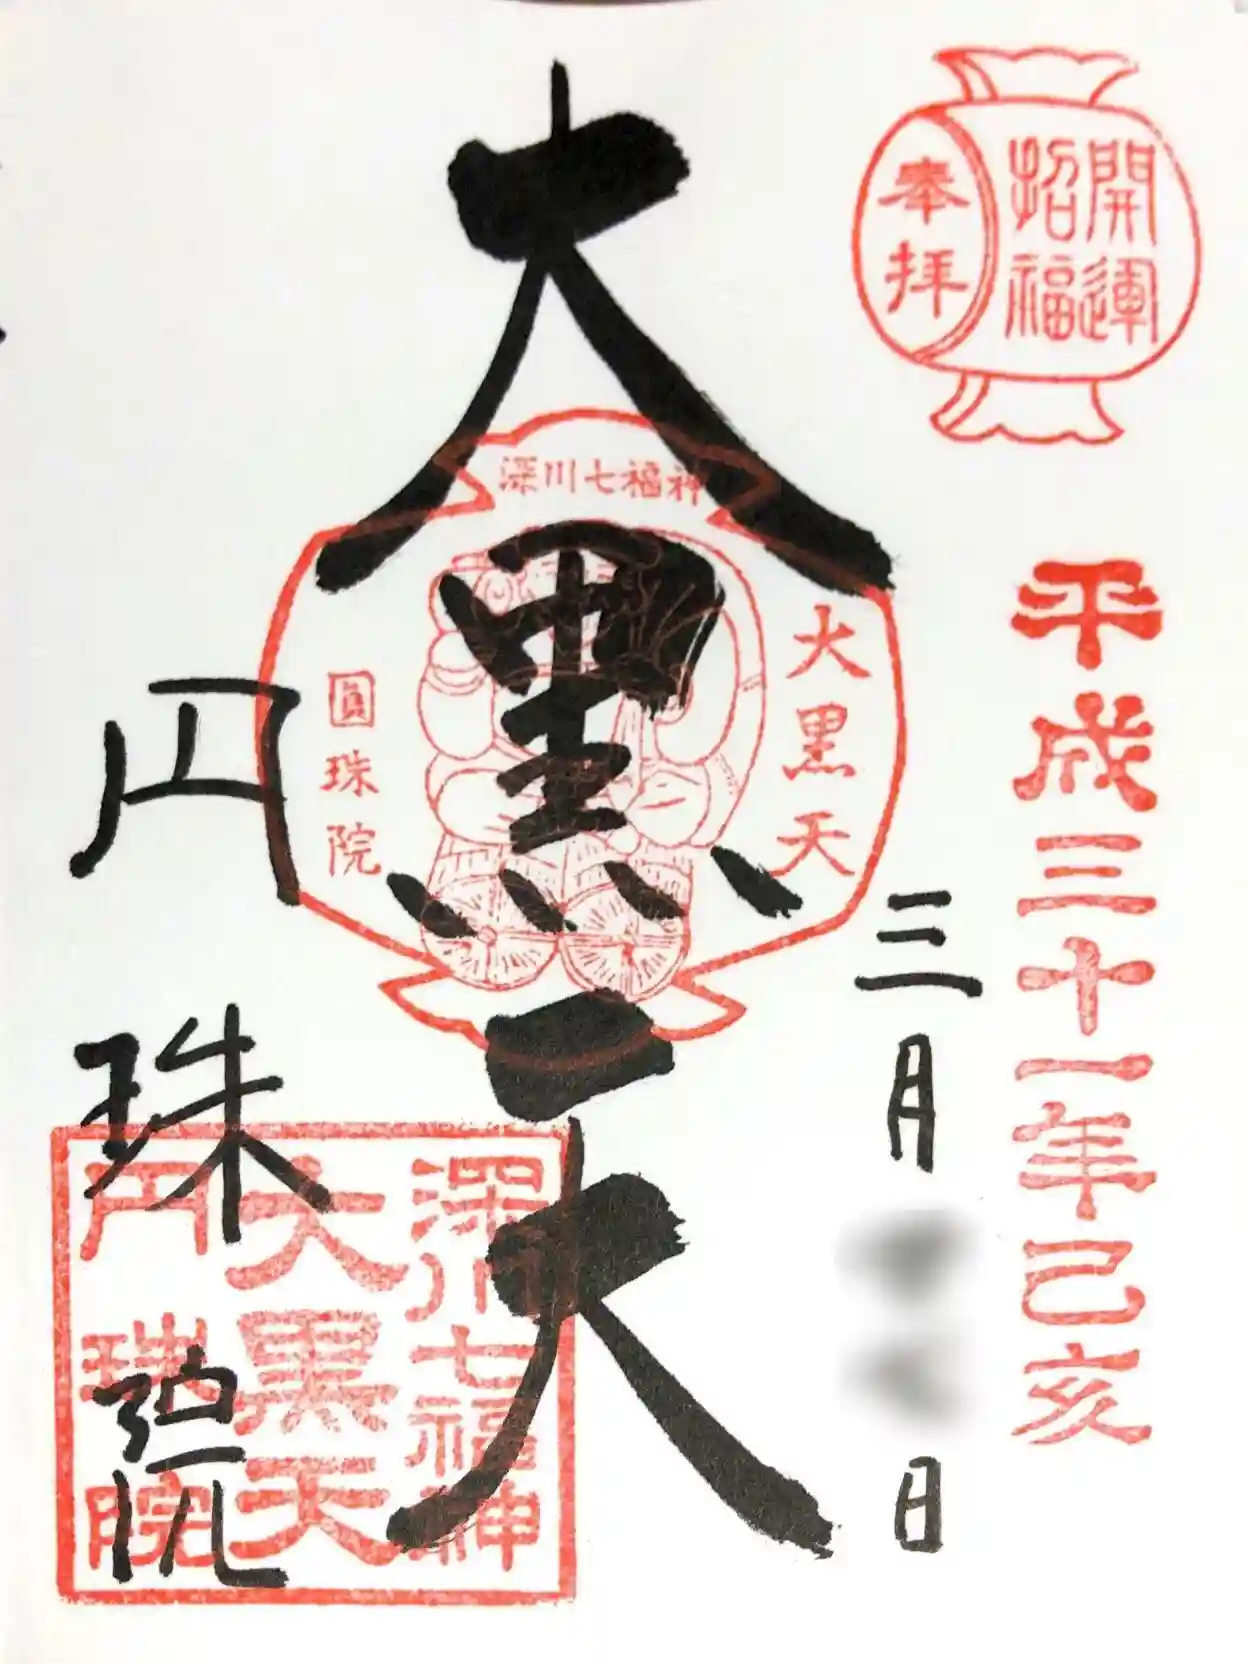 開運
招福
奉拝
平成三十一年己亥
三月
日
大黒天
深川七福神
大黒天
圓珠院
円珠院
深川七福神
大黒天
円珠院